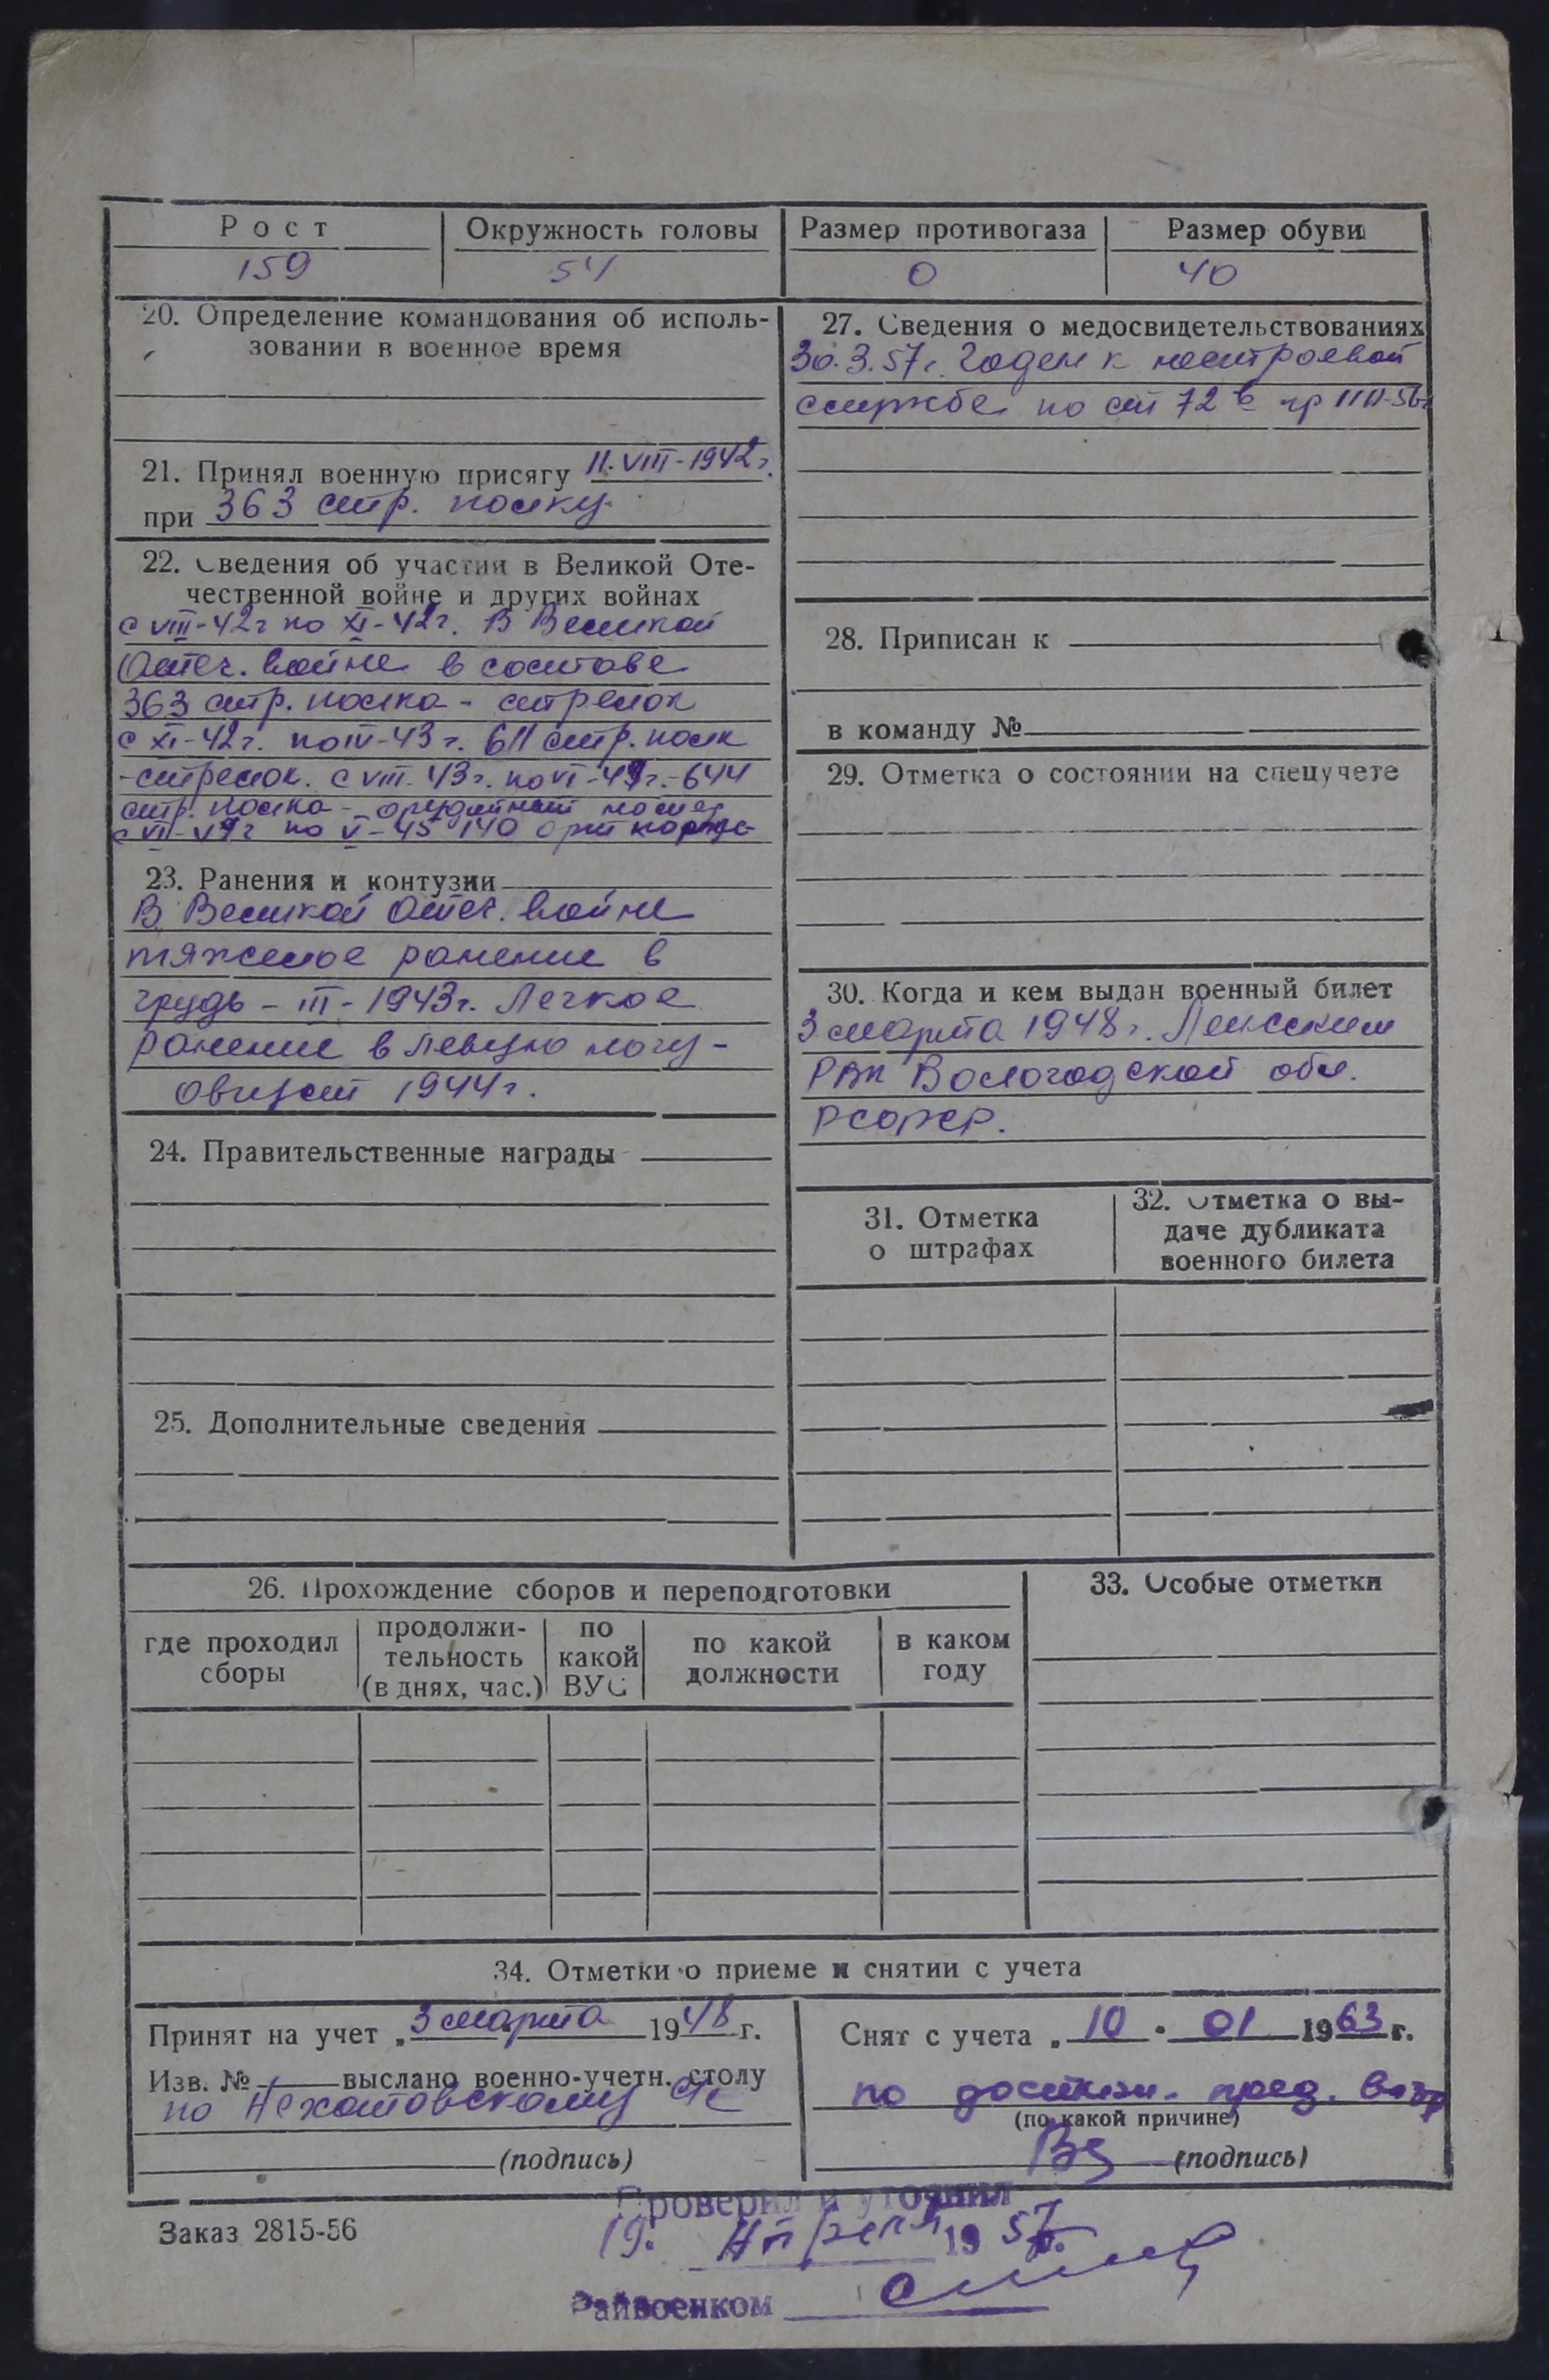 Рост Окружность головы Размер противогаза Размер обуви
159 54 0 40
20. Определение командования об исполь-
зовании в военное время
21. Принял военную присягу 11.VIII-1942г.
при 363 стр. полку
22. Сведения об участии в Великой Оте-
чественной войне и других войнах
с VIII-42г по XI-42г. В Великой
Отеч. войне в составе
363 стр. полка - стрелок
с XI-42г. по IV-43г. 611 стр. полк
- стрелок. с VIII-43г. по VI-44г. - 644
стр. полка - орудийный номер
с VI-44г по V-45 140 арт
23. Ранения и контузии
В Великой Отеч. войне
тяжелое ранение в
грудь - III - 1943г. Легкое
ранение в левую ногу -
август 1944г.
24. Правительственные награды
25. Дополнительные сведения
27. Сведения о медосвидетельствованиях
30.3.57г. Годен к нестроевой
службе по ст 72 в гр III
28. Приписан к
в команду №
29. Отметка о состоянии на спецучете
30. Когда и кем выдан военный билет
3 марта 1948г. Ленским
РВК Вологодской обл.
РСФСР.
31. Отметка
о штрафах
32. Отметка о вы-
даче дубликата
военного билета
26. Прохождение сборов и переподготовки
где проходил
сборы
продолжи-
тельность
(в днях, час.)
по
какой
ВУС
по какой
должности
в каком
году
33. Особые отметки
34. Отметки о приеме и снятии с учета
Принят на учет „3 марта 1948 г.
Изв. № выслано военно-учетн. столу
по
(подпись)
Снят с учета „10 " 01 1963 г.
по достиж. пред. возр
(по какой причине)
(подпись)
Заказ 2815-56
Проверил и уточнил
19. Апреля 1957г.
Райвоенком